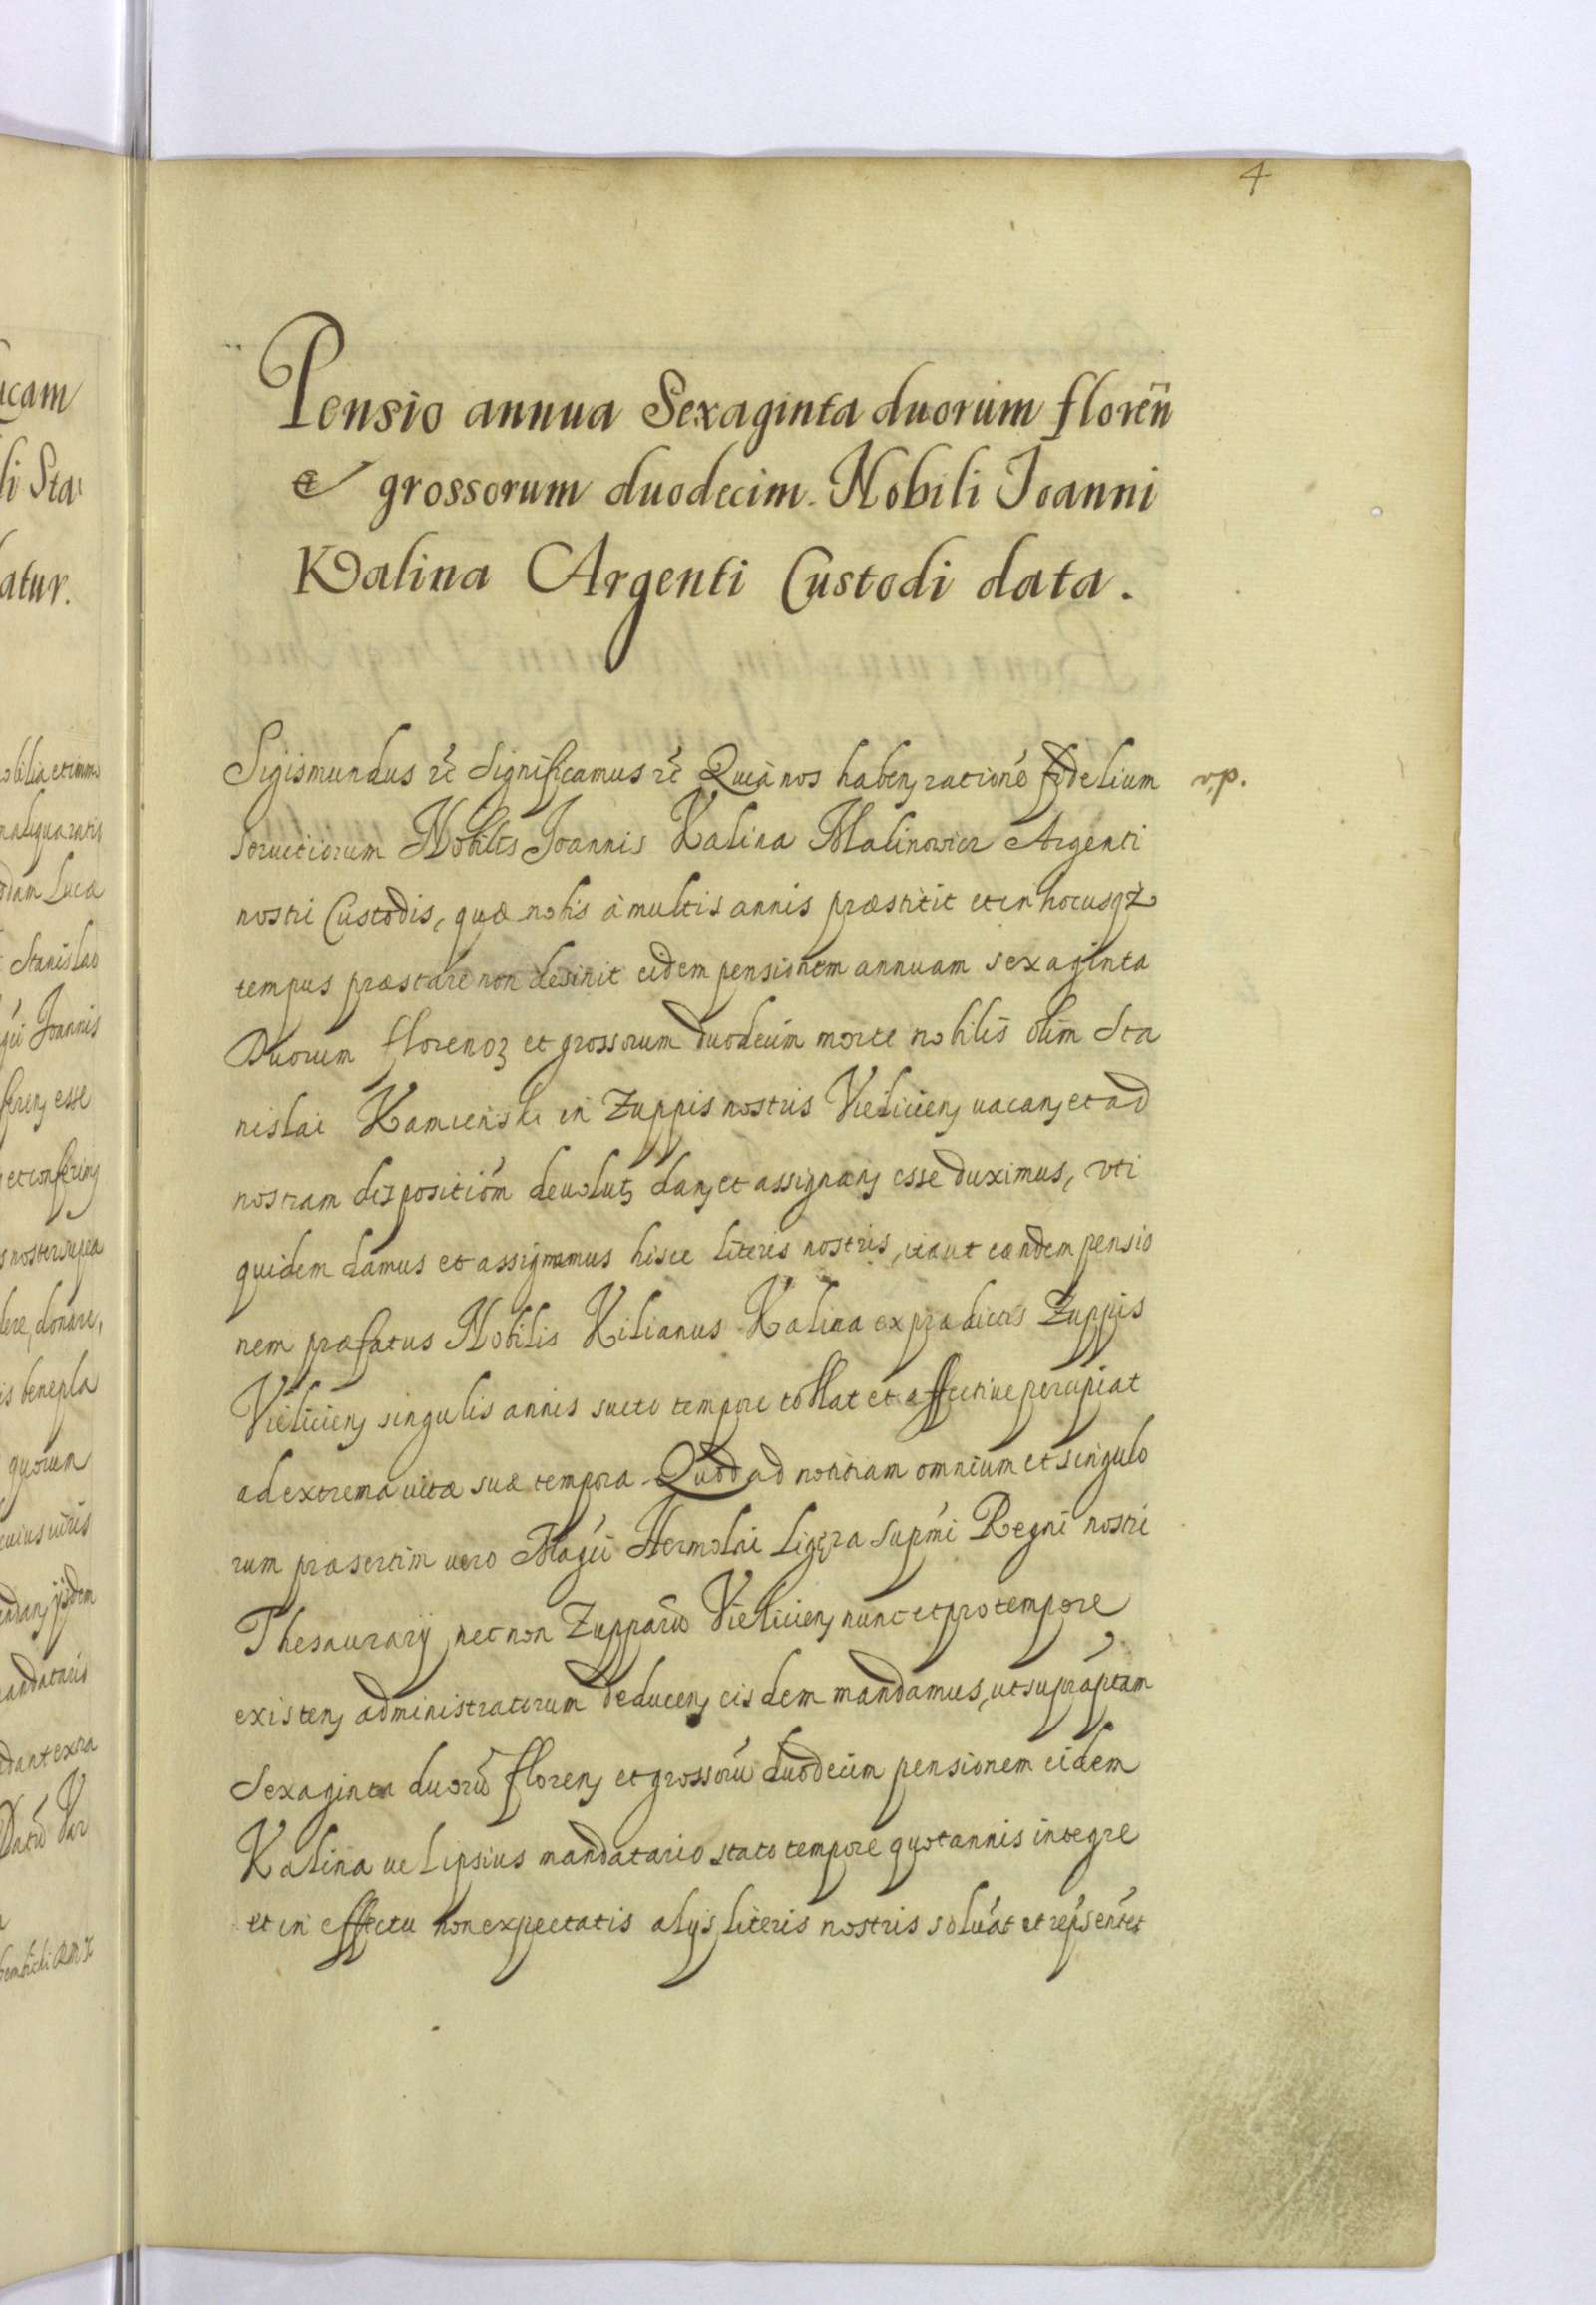 4
Pensio annua Sexaginta duorum floreñ
et grossorum duodecim. Nobili Joanni
Kalina Argenti Custodi data.
Sigismundus rc̃ Significamus rc̃ Quia nos haben̨ rationé fidelium
v.p.
seruitiorum Nobilis Joannis Kalina Malinowicz Argenti
nostri Custodis, quæ nobis à multis annis præstitit et in hocusqȝ
tempus præstare non desinit eidem pensionem annuam sexaginta
Duorum florenoꝝ et grossorum duodecim morte nobilis olim Sta
nislai Kamienski in Zuppis nostris Vielicien̨ uacan̨ et ad
nostram dispositiom̃ deuolut̨ dan̨ et assignan̨ esse duximus, vti
quidem damus et assignamus hisce literis nostris, ita ut eandem pensio
nem præfatus Nobilis Kilianus Kalina ex prædictis Zuppis
Vielicien̨ singulis annis sueto tempore tollat et effectiue percipiat
ad extrema uitæ suæ tempora. Quod ad notitiam omnium et singulo
rum præsertim uero Magći Hermolai Ligęza Supm̃i Regni nostri
Thesaurarij nec non Zupparũ Vielicien̨ nunc et pro tempore
existen̨ administratorum deducen̨ eisdem mandamus, ut supraptam
Sexaginta duorũ floren̨ et grossorũ duodecim pensionem eidem
Kalina uel ipsius mandatario stato tempore quotannis integre
et in effectu non expectatis alijs literis nostris soluat et rep̃sentet
ucam
li Sta
atur.
odam Lucæ
Stanislao
Joannis
feren̨ esse
et conferim̨
noster supra
dere, donare,
is benepla
quorum
cuius uiris
andan̨ ijsdem
mandatario
dant extra
Datũ Var